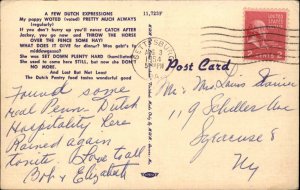 A FEW DUTCH EXPRESSIONS
11,723F
My poppy WOTED (voted) PRETTY MUCH ALWAYS
(regularly)
If you don't hurry up you'll never CATCH AFTER
Jackey, go you now and THROW THE HORSE
OVER THE FENCE SOME HAY!
WHAT DOES IT GIVE for dinner? Wos gebt's for
middawgessa?
She was SET DOWN PLENTY HARD
She used to come here STILL, but now she DON'T
NO MORE!
And Last But Not Least
The Dutch Pantry food tastes wonderful good
Post Card
Found some
real Penn Dutch
Hospitality here
Rained again
tonite. Love to all
Bob & Elizabeth
Mr + Mrs Louis
119 Schiller Ave
Syracuse 8
NY